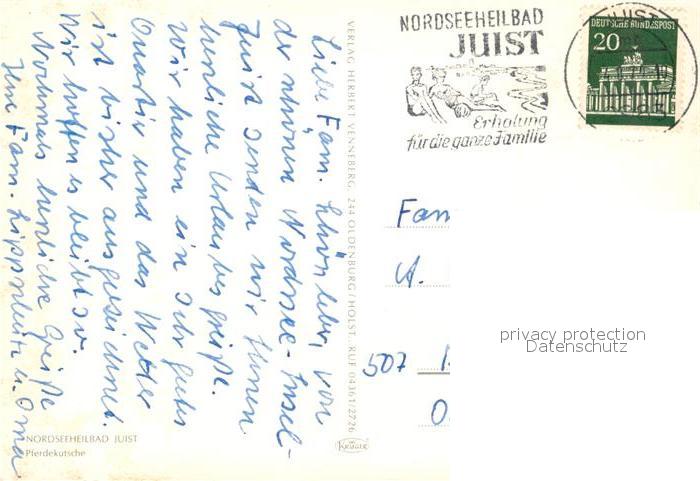 Liebe Fam. Schönleber, von
der schönen Nordsee-Insel
Juist senden wir Ihnen
herzliche Urlaubsgrüße.
Wir haben ein sehr gutes
Quartier und das Wetter
ist bisher ausgezeichnet.
Wir hoffen es bleibt so.
Nochmals herzliche Grüße
Ihre Fam. u. Oma
NORDSEEHEILBAD JUIST
Pferdekutsche
VERLAG HERBERT VENNEBERG, 244 OLDENBURG/HOLST. RUF 04361/2726
KRÜGER
NORDSEEHEILBAD
JUIST
Erholung
für die ganze Familie
JUIST
DEUTSCHE BUNDESPOST
20
Fam
A.
507
O
privacy protection
Datenschutz